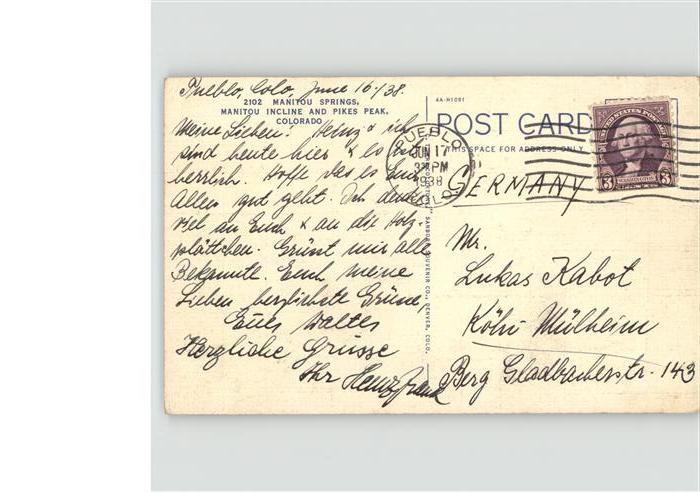 Pueblo, Colo, June 16./38.
2102 MANITOU SPRINGS,
MANITOU INCLINE AND PIKES PEAK,
COLORADO
Meine Lieben! Heinz & ich
sind heute hier & es ist
herrlich. Hoffe das es Euch
Allen gut geht. Ich denke
viel an Euch & an die Holz-
plättchen. Grüsst mir alle
Bekannte. Euch meine
Lieben herzlichste Grüsse,
Euer Walter
Herzliche Grüsse
Ihr Heinz Frank
4A-H1081
POST CARD
THIS SPACE FOR ADDRESS ONLY
PUEBLO
JUN 17
3 PM
1938
COLO.
UNITED STATES POSTAGE
WASHINGTON
3 3
SANBORN SOUVENIR CO., DENVER, COLO.
GERMANY
Mr.
Lukas Kabot
Köln Mülheim
Berg Gladbacherstr. 143